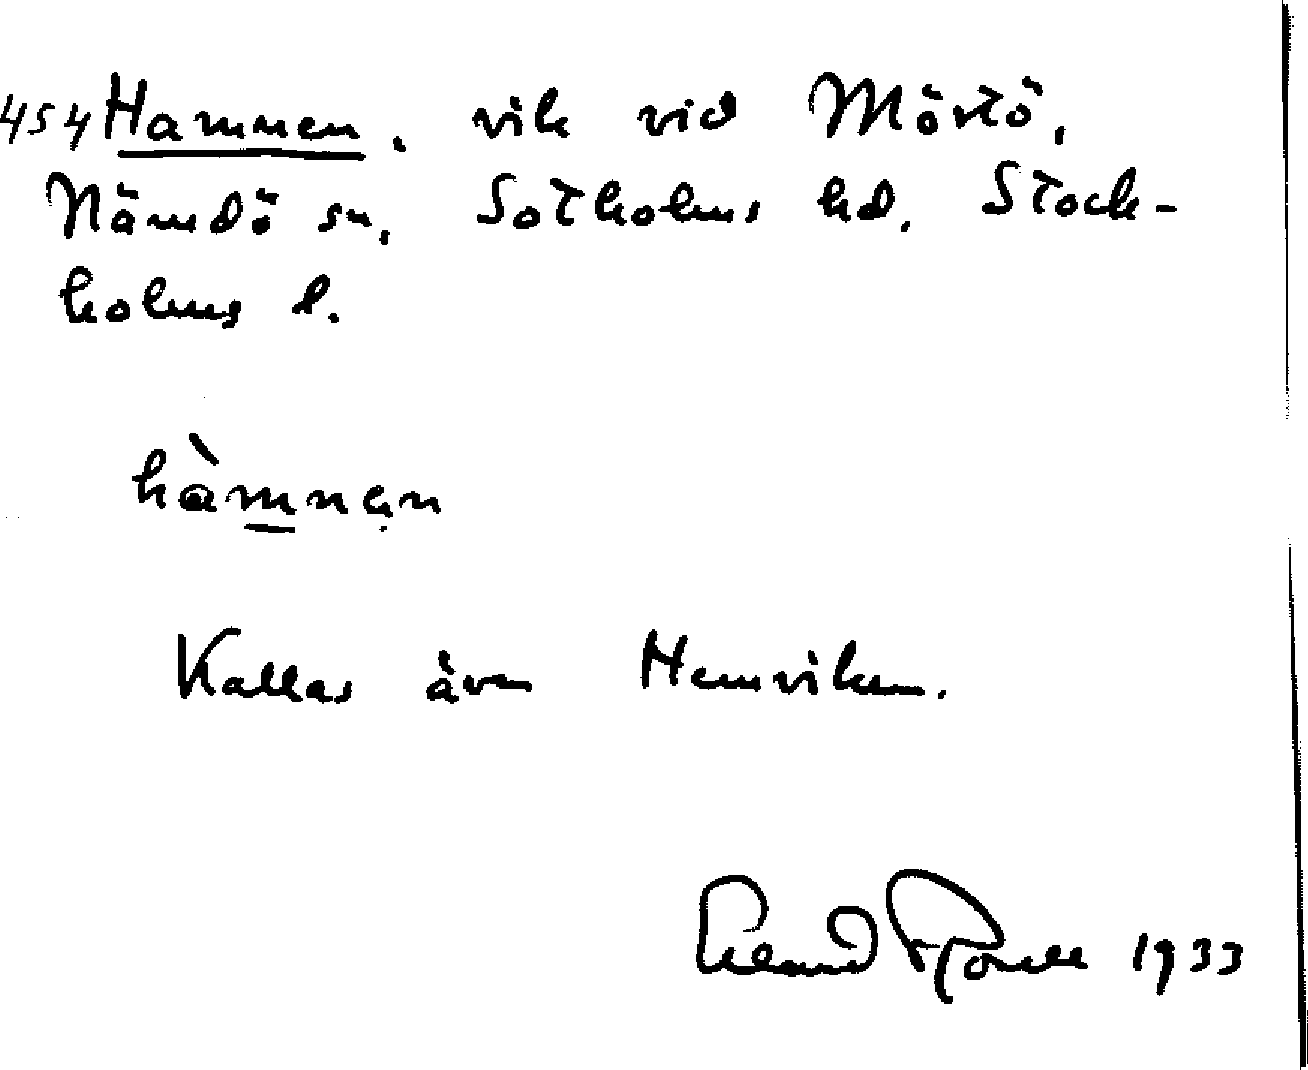 454 Hamnen, vik vid Mörtö,
Nämdö sn, Sotholms hd, Stock-
holms l.
hàmnạn
Kallas även Hemviken.
1933